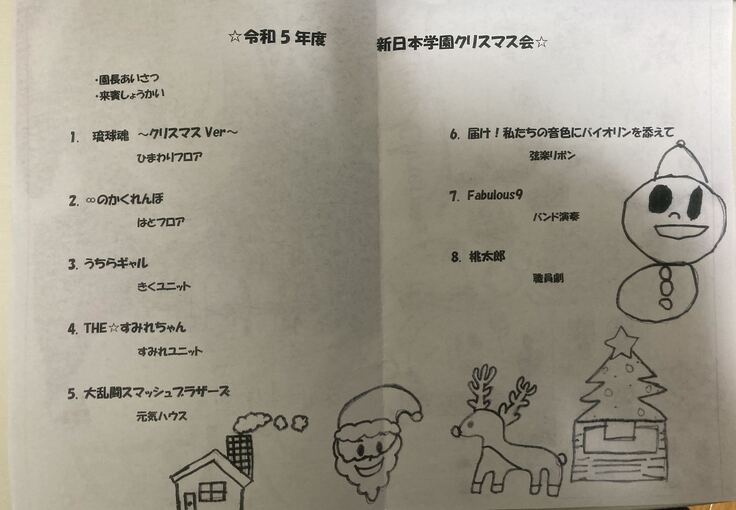 ☆令和5年度 新日本学園クリスマス会☆
・園長あいさつ
・来賓しょうかい
1. 琉球魂 ～クリスマスVer～
ひまわりフロア
2. ∞のかくれんぼ
はとフロア
3. うちらギャル
きくユニット
4. THE☆すみれちゃん
すみれユニット
5. 大乱闘スマッシュブラザーズ
元気ハウス
6. 届け！私たちの音色にバイオリンを添えて
弦楽リボン
7. Fabulous9
バンド演奏
8. 桃太郎
職員劇